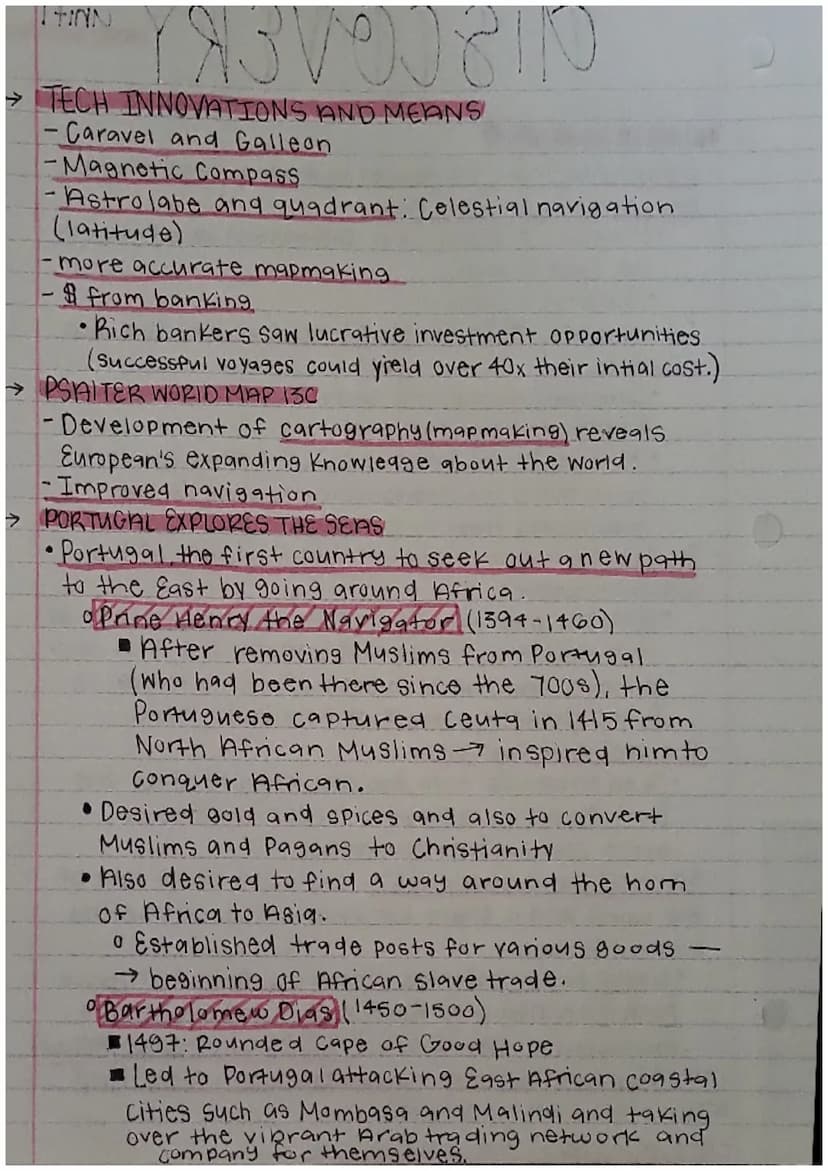 DISCOVERY
→ TECH INNOVATIONS AND MEANS
- Caravel and Galleon
- Magnetic Compass
- Astrolabe and quadrant: Celestial navigation
(latitude)
- more accurate mapmaking
- $ from banking
• Rich bankers saw lucrative investment opportunities
(successful voyages could yield over 40x their intial cost.)
→ PSALTER WORLD MAP 13C
- Development of cartography (mapmaking) reveals
European's expanding knowledge about the world.
- Improved navigation
→ PORTUGAL EXPLORES THE SEAS
• Portugal, the first country to seek out a new path
to the East by going around Africa.
o Prine Henry the Navigator (1394-1460)
■ After removing Muslims from Portugal
(who had been there since the 700s), the
Portuguese captured Ceuta in 1415 from
North African Muslims → inspired him to
conquer African.
• Desired gold and spices and also to convert
Muslims and Pagans to Christianity
• Also desired to find a way around the horn
of Africa to Asia.
o Established trade posts for various goods —
→ beginning of African slave trade.
o Bartholomew Dias (1450-1500)
■ 1497: Rounded Cape of Good Hope
■ Led to Portugal attacking East African coastal
cities such as Mombasa and Malindi and taking
over the vibrant Arab trading network and
company for themselves.